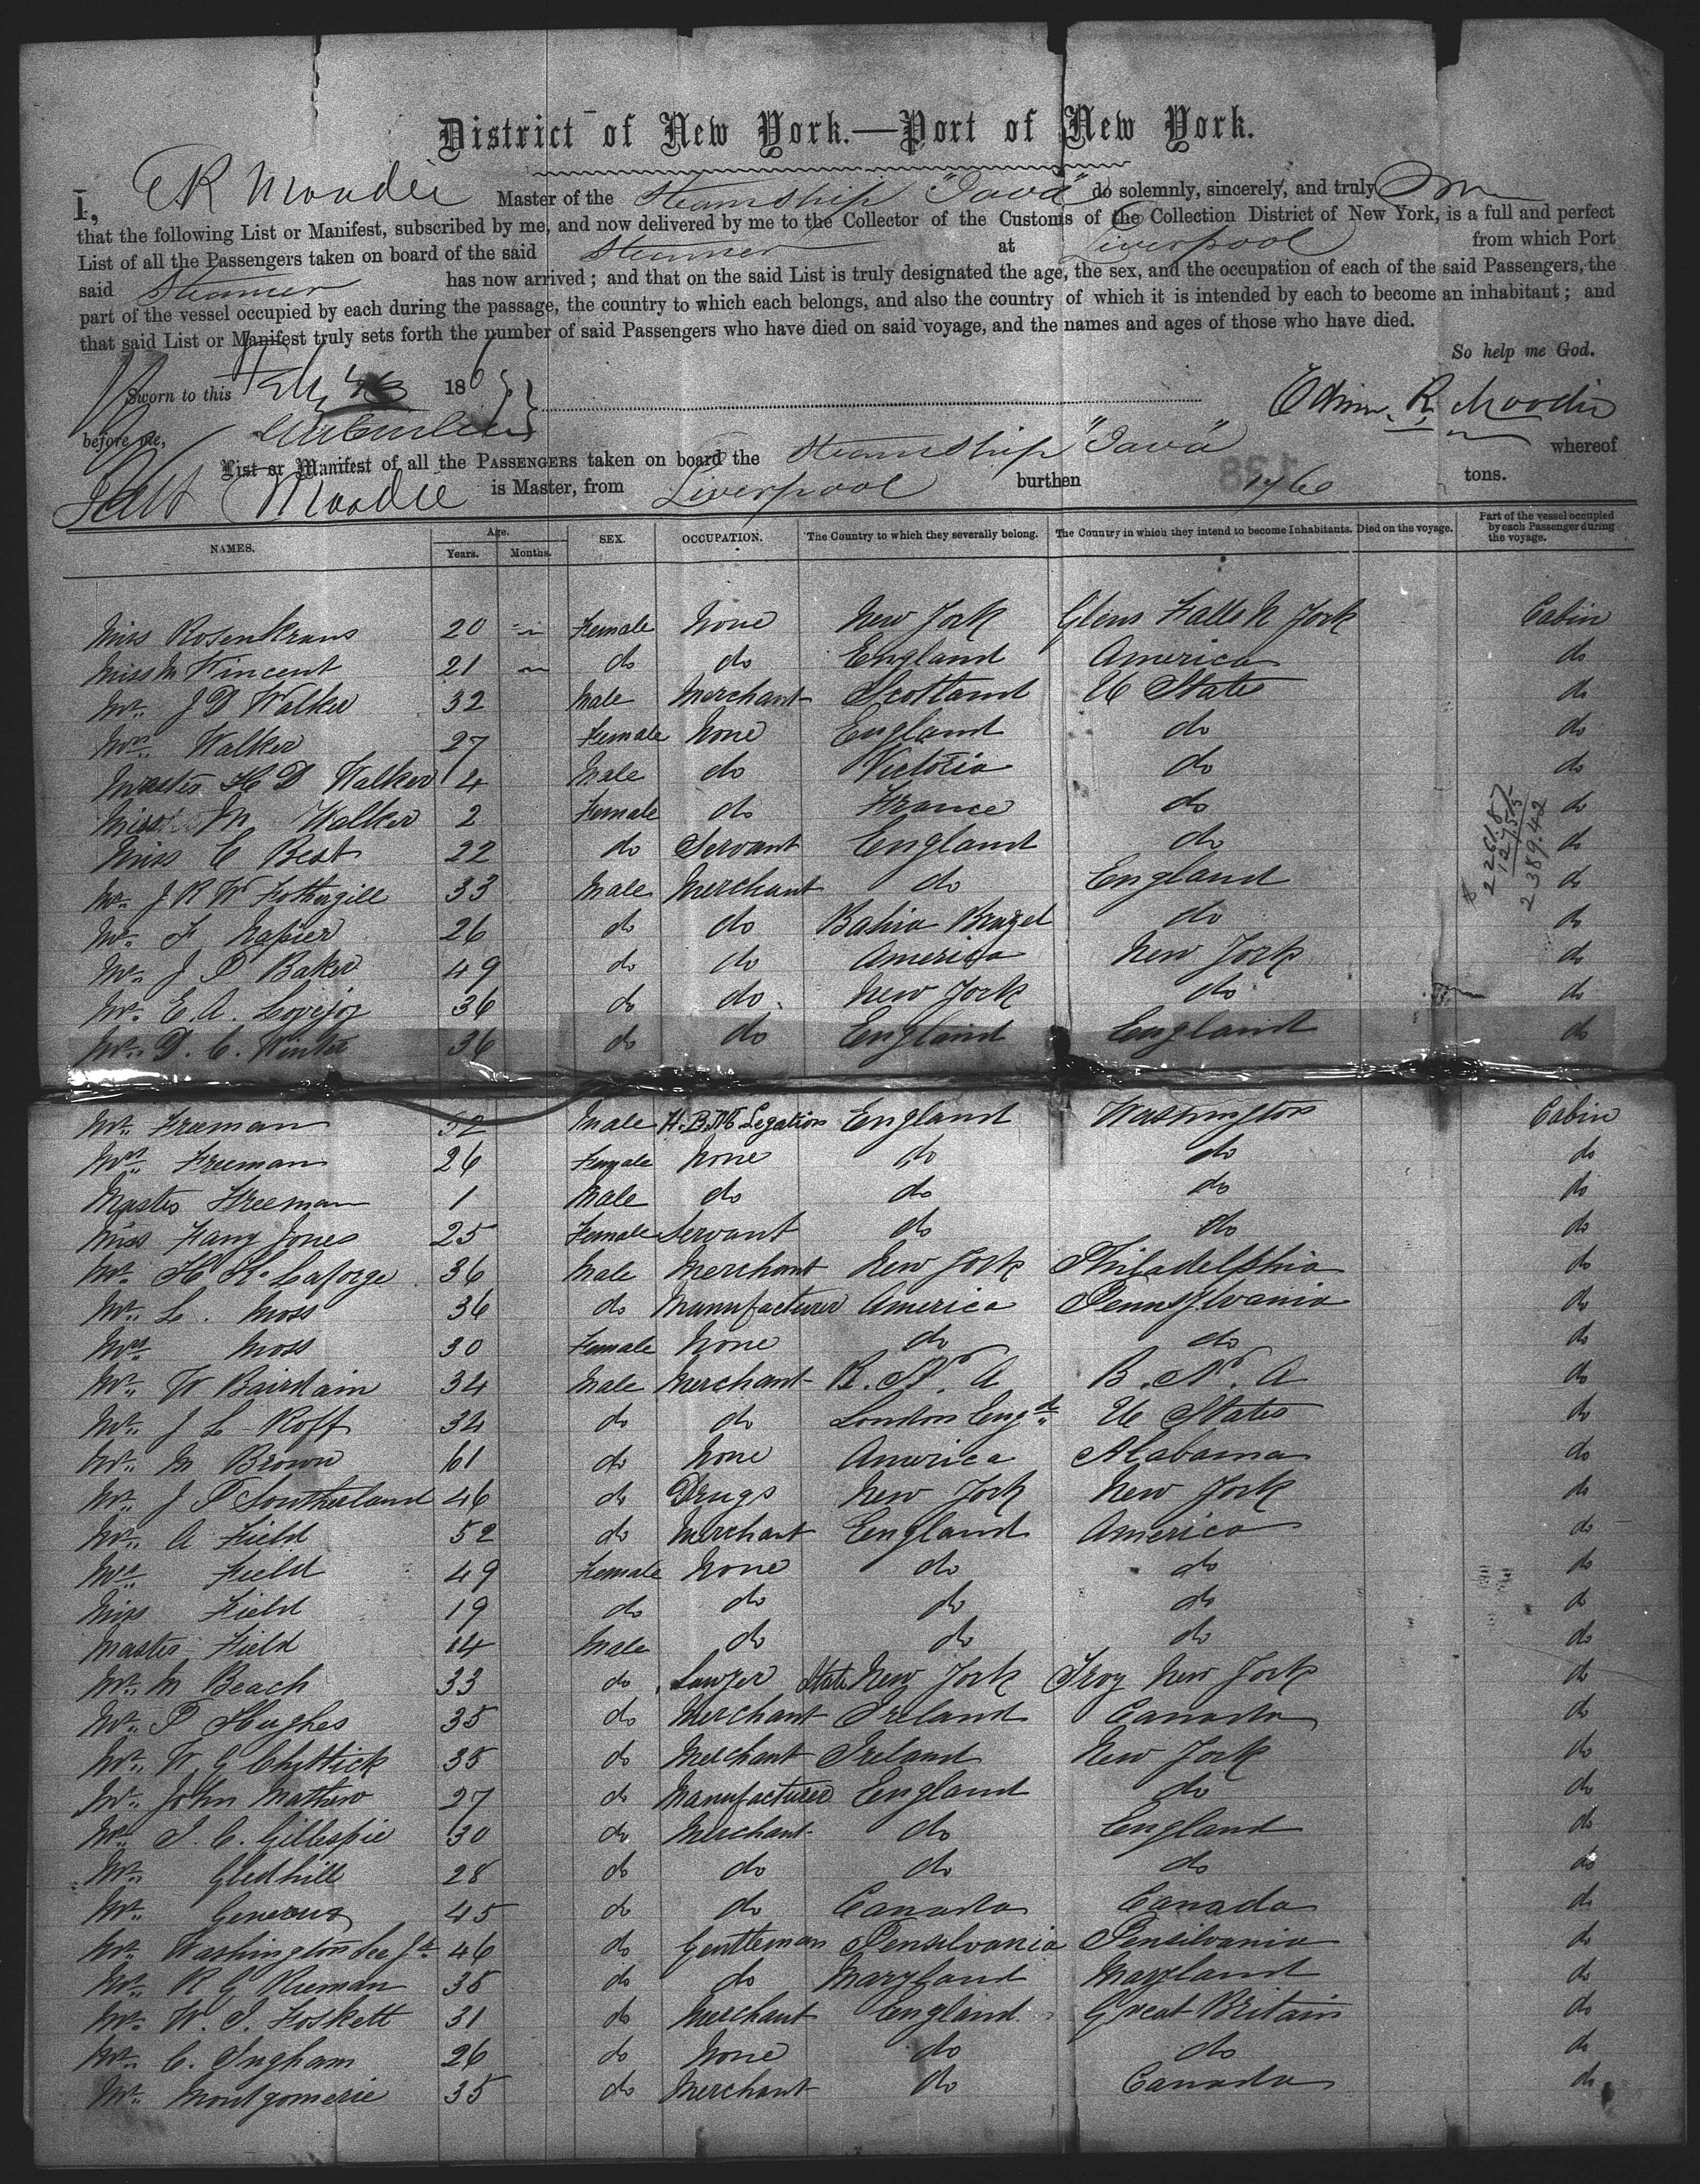 District of New York.—Port of New York.
I, E R Moodie Master of the Steamship "Java" do solemnly, sincerely, and truly
that the following List or Manifest, subscribed by me, and now delivered by me to the Collector of the Customs of the Collection District of New York, is a full and perfect
List of all the Passengers taken on board of the said Steamer at Liverpool from which Port
said Steamer has now arrived; and that on the said List is truly designated the age, the sex, and the occupation of each of the said Passengers, the
part of the vessel occupied by each during the passage, the country to which each belongs, and also the country of which it is intended by each to become an inhabitant; and
that said List or Manifest truly sets forth the number of said Passengers who have died on said voyage, and the names and ages of those who have died.
So help me God.
Sworn to this 186
Edwin. R. Moodie
before me,
List or Manifest of all the PASSENGERS taken on board the Steamship "Java" whereof
Moodie is Master, from Liverpool burthen 1760 tons.
NAMES. Age. Years. Months. SEX. OCCUPATION. The Country to which they severally belong. The Country in which they intend to become Inhabitants. Died on the voyage. Part of the vessel occupied by each Passenger during the voyage.
Miss Rosenkrans 20 Female None New York Glens Falls N York Cabin
Miss M Vincent 21 do do England America do
Mr. J D Walker 32 Male Merchant Scotland U States do
Mrs. Walker 27 Female None England do do
Master H D Walker 4 Male do Victoria do do
Miss M Walker 2 Female do France do do
Miss E Best 22 do Servant England do do
Mr. J R W Fothergill 33 Male Merchant do England do
Mr. F Napier 26 do do Bahia Brazel do do
Mr. J P Baker 49 do do America New York do
Mr. E. A. Lovejoy 36 do do New York do do
Mr. D. C. Winter 36 do do England England do
$ 2261.87
127.55
2389.42
Mr. Freeman 32 Male H. B. M Legation England Washington Cabin
Mrs. Freeman 26 Female None do do do
Master Freeman 1 Male do do do do
Miss Fany Jones 25 Female Servant do do do
Mr. H K. Laforge 36 Male Merchant New York Philadelphia do
Mr. L. Moss 36 do Manufacturer America Pennsylvania do
Mrs. Moss 30 Female None do do do
Mr. W Bairdain 34 Male Merchant B. N. A B. N. A do
Mr. J L Roff 34 do do London Engd. U States do
Mr. M Brown 61 do None America Alabama do
Mr. J P Southerland 46 do Drugs New York New York do
Mr. A Field 52 do Merchant England America do
Mrs. Field 49 Female None do do do
Miss Field 19 do do do do do
Master Field 14 Male do do do do
Mr. M Beach 33 do Lawyer State New York Troy New York do
Mr. P Hughes 35 do Merchant Ireland Canada do
Mr. W G Chittick 35 do Merchant Ireland New York do
Mr. John Mathew 27 do Manufacturer England do do
Mr. J. C. Gillespie 30 do Merchant do England do
Mr. Gledhill 28 do do do do do
Mr. Genereux 45 do do Canada Canada do
Mr. Washington Lee Jr. 46 do Gentleman Pensilvania Pensilvania do
Mr. R G Rieman 35 do do Maryland Maryland do
Mr. W. J. Foskett 31 do Merchant England Great Britain do
Mr. C. Ingham 26 do None do do do
Mr. Montgomerie 35 do Merchant do Canada do